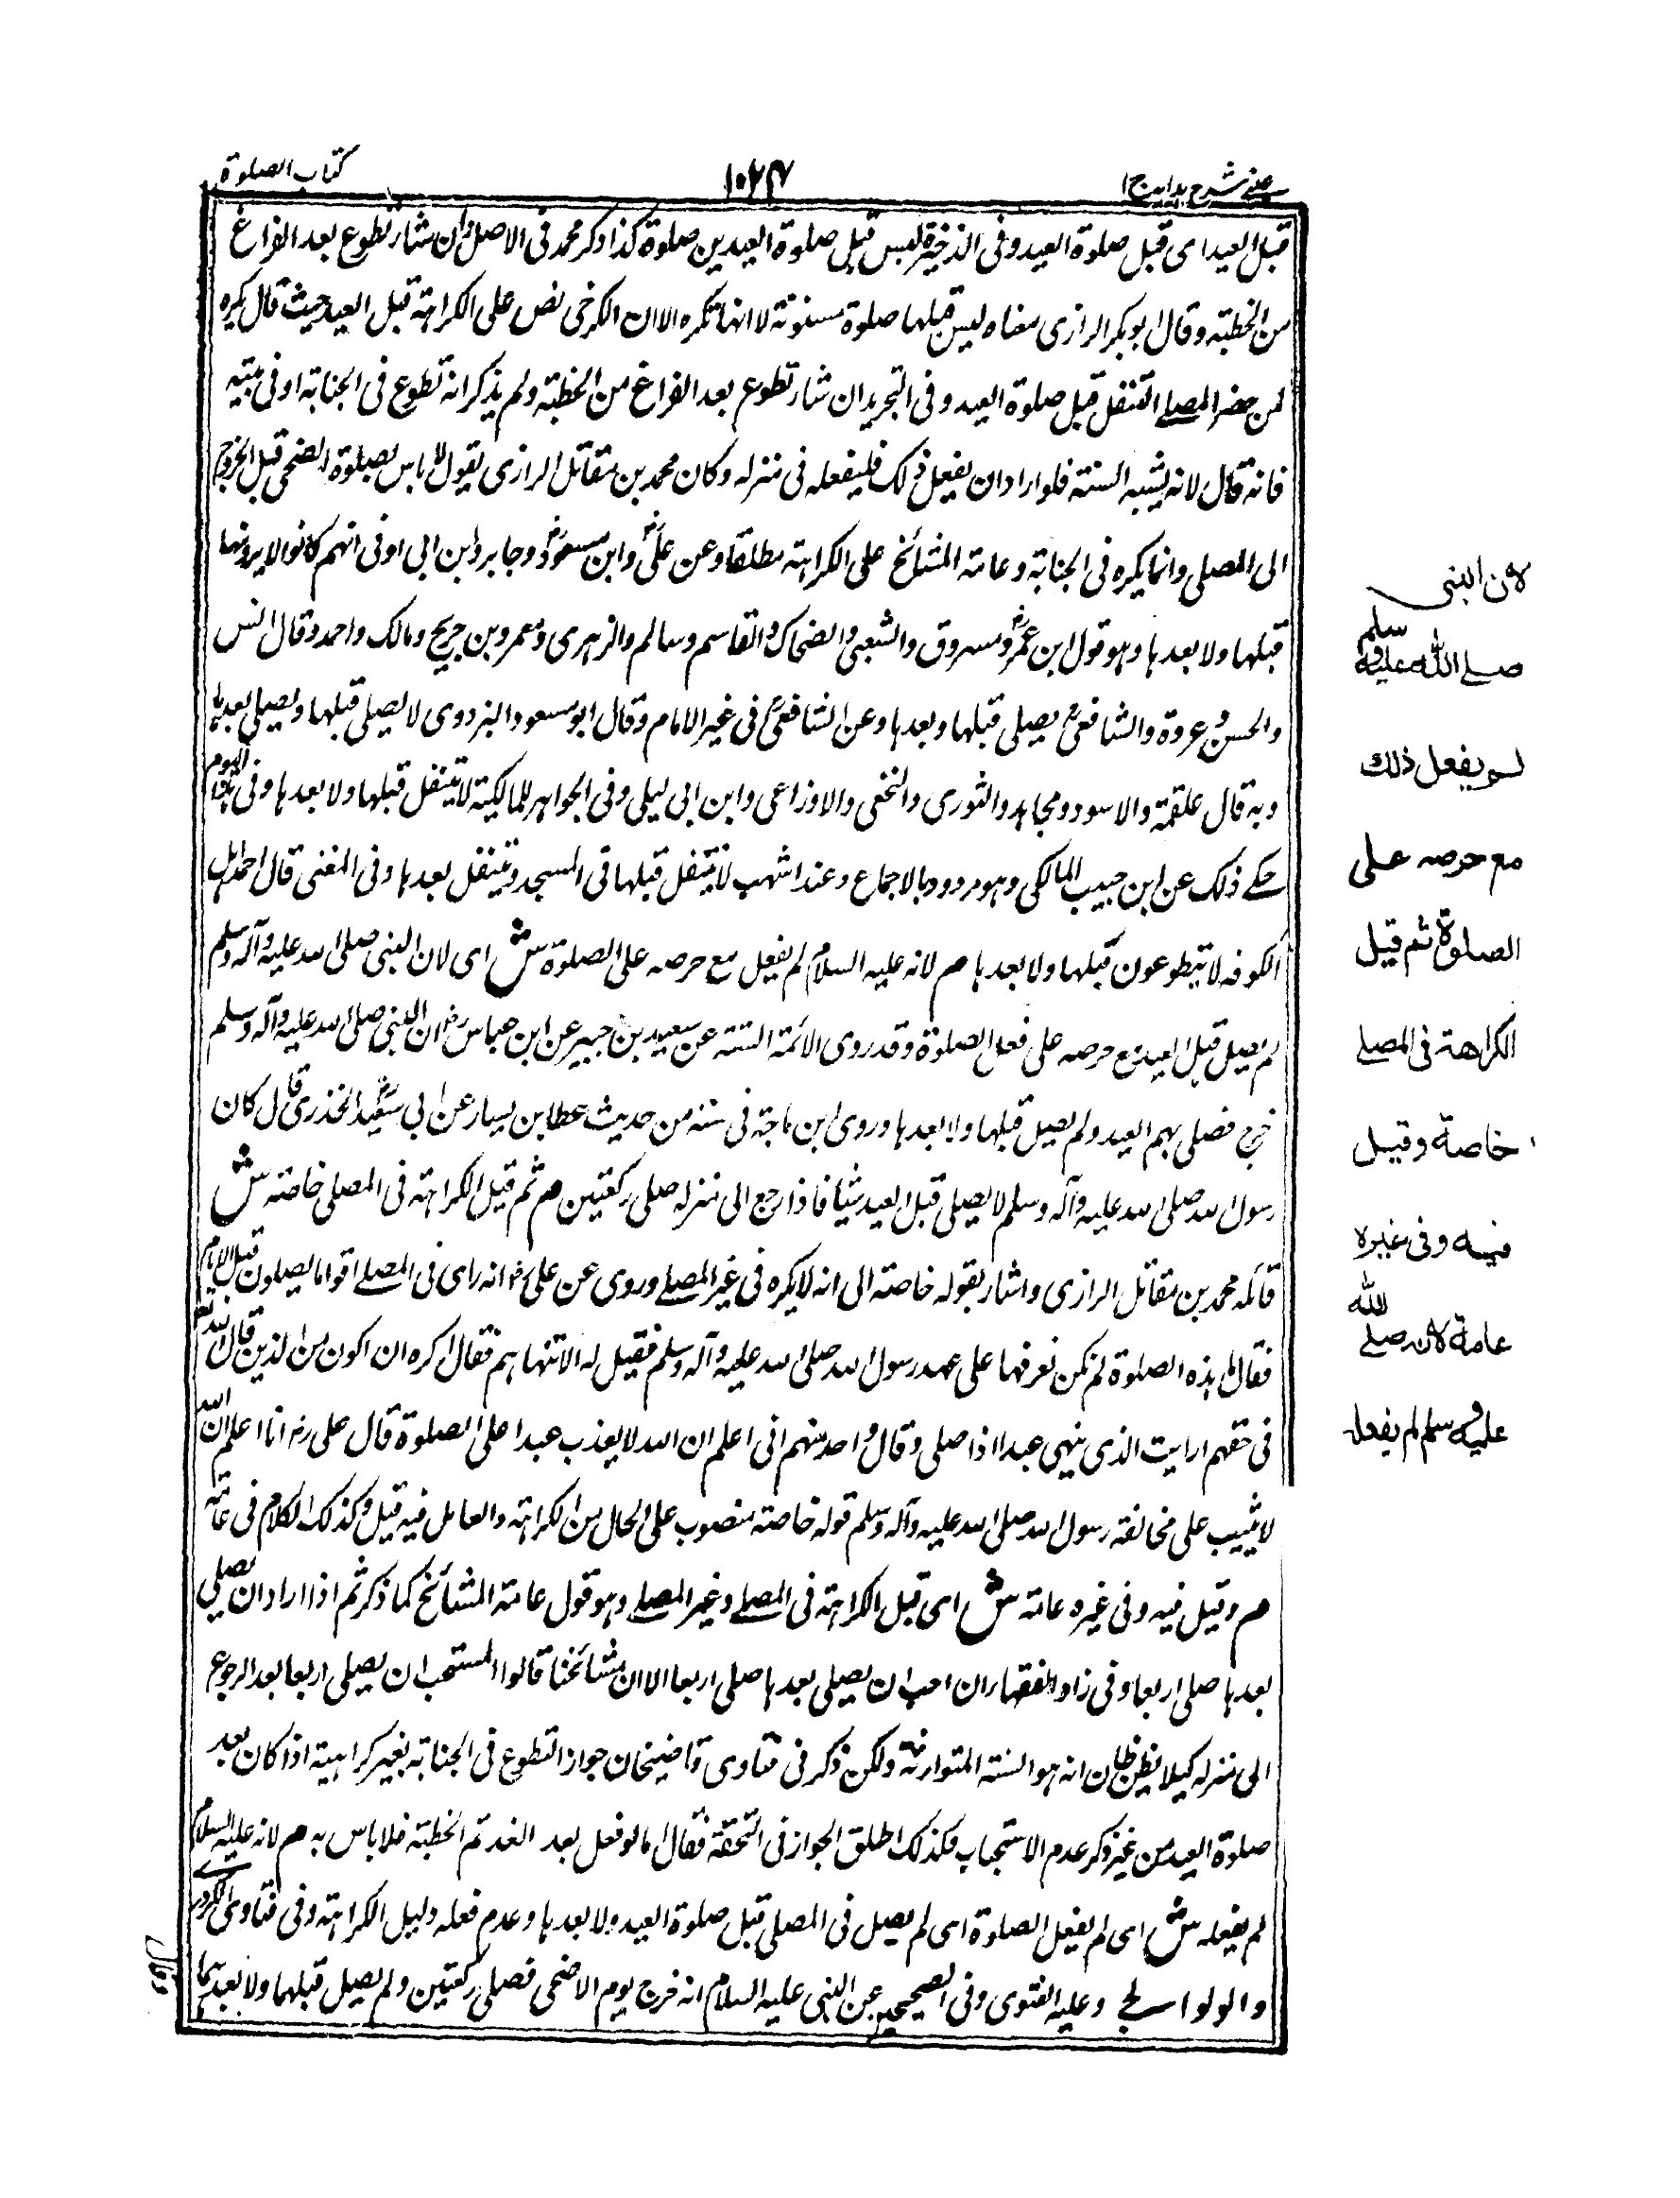 عینی شرح ہدایہ ج ا
۱۰۲۴
کتاب الصلوة
قبل العید ای قبل صلوة العید وفی الذخیرة لیس قبل صلوة العیدین صلوة کذا ذکر محمد فی الاصل وان شاء تطوع بعد الفراغ
من الخطبة وقال ابو بکر الرازی معناه لیس قبلها صلوة مسنونة لا انها تکره الا ان الکرخی نص علی الکراهة قبل العید حیث قال یکره
لمن حضر المصلے التنفل قبل صلوة العید وفی التجرید ان شاء تطوع بعد الفراغ من الخطبة ولم یذکر انه تطوع فی الجبانة او فی بیته
فانه قال لانه یشبه السنة فلو اراد ان یفعل ذلک فلیفعله فی منزله وکان محمد بن مقاتل الرازی یقول لا باس بصلوة الضحی قبل الخروج
الی المصلی وانما یکره فی الجبانة وعامة المشائخ علی الکراهة مطلقا وعن علیؓ وابن مسعودؓ وجابر وابن ابی اوفی انهم کانوا لا یرونها
قبلها ولا بعدها وهو قول ابن عمرؓ ومسروق والشعبی والضحاک والقاسم وسالم والزهری ومعمر وبن جریج ومالک واحمد وقال انس
والحسن وعروة والشافعیؒ یصلی قبلها وبعدها وعن الشافعیؒ فی غیر الامام وقال ابو مسعود البزدوی لا یصلی قبلها ویصلی بعدها
وبه قال علقمة والاسود ومجاهد والثوری والنخعی والاوزاعی وابن ابی لیلی وفی الجواهر للمالکیة لا یتنفل قبلها ولا بعدها وفی الیوم
حکے ذلک عن ابن حبیب المالکی وهو مردود بالاجماع وعند اشهب لا یتنفل قبلها فی المسجد ویتنفل بعدها وفی المغنی قال احمد اهل
الکوفه لا یتطوعون قبلها ولا بعدها م لانه علیه السلام لم یفعل مع حرصه علی الصلوة ش ای لان النبی صلی الله علیه وآله وسلم
لم یصل قبل العید مع حرصه علی فعل الصلوة وقد روی الائمة الستة عن سعید بن جبیر عن ابن عباس رض ان النبی صلی الله علیه وآله وسلم
خرج فصلی بهم العید ولم یصل قبلها ولا بعدها وروی ابن ماجة فی سننه من حدیث عطا بن یسار عن ابی سعیدؓ الخدری قال کان
رسول الله صلی الله علیه وآله وسلم لا یصلی قبل العید شیئا فاذا رجع الی منزله صلی رکعتین م ثم قیل الکراهة فی المصلی خاصة ش
قائله محمد بن مقاتل الرازی واشار بقوله خاصة الی انه لا یکره فی غیر المصلے وروی عن علی رض انه رای فی المصلے اقواما یصلون قبل الامام
فقال ما هذه الصلوة لم نکن نعرفها علی عهد رسول الله صلی الله علیه وآله وسلم فقیل له الا تنهاهم فقال اکره ان اکون من الذین قال الله تعالی
فی حقهم ارایت الذی ینهی عبدا اذا صلی وقال واحد منهم انی اعلم ان الله لا یعذب عبدا علی الصلوة قال علی رض انا اعلم ان الله
لا یثیب علی مخالفة رسول الله صلی الله علیه وآله وسلم قوله خاصة منصوب علی الحال من الکراهة والعامل فیه قیل وکذلک الکلام فی عامة
م وقیل فیه وفی غیره عامة ش ای قیل الکراهة فی المصلے وغیر المصلے وهو قول عامة المشائخ کما ذکر ثم اذا اراد ان یصلی
بعدها صلی اربعا وفی زاد الفقهاء ان احب ان یصلی بعدها صلی اربعا الا ان مشائخنا قالوا المستحب ان یصلی اربعا بعد الرجوع
الی منزله کیلا یظن ظان انه هو السنة المتوارثة ولکن ذکر فی فتاوی قاضیخان جواز التطوع فی الجبانة بغیر کراهیة اذا کان بعد
صلوة العید من غیر ذکر عدم الاستحباب فکذلک اطلق الجواز فی التحفة فقال اما لو فعل بعد الغد ثم الخطبة فلا باس به م لانه علیه السلام
لم یفعله ش ای لم یفعل الصلوة ای لم یصل فی المصلی قبل صلوة العید ولا بعدها وعدم فعله دلیل الکراهة وفی فتاوی الکردی
والولوالجے وعلیه الفتوی وفی الصحیحین عن النبی علیه السلام انه خرج یوم الاضحی فصلی رکعتین ولم یصل قبلهما ولا بعدهما
وقال
لان النبی
صلے الله علیه وسلم
لم یفعل ذلك
مع حرصه علی
الصلوة ثم قیل
الکراهة فی المصلے
خاصة وقیل
فیه وفی غیره
عامة لانه صلے الله
علیه وسلم لم یفعله